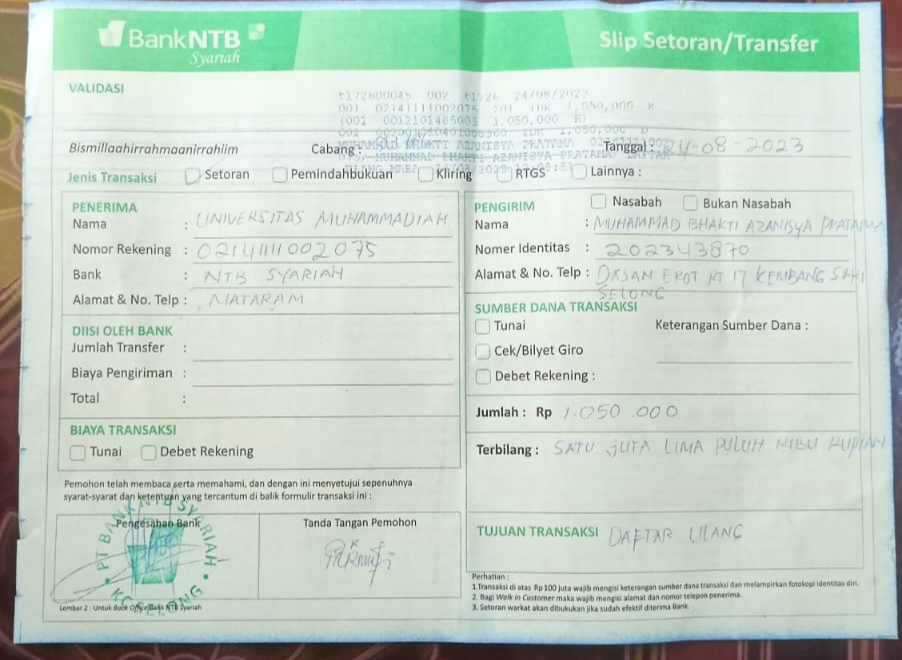 BankNTB
Syariah
Slip Setoran/Transfer
VALIDASI
002 24/08/2023
001 1,050,000
(001 0012101485003 1,050,000
Bismillaahirrahmaanirrahiim Cabang : Tanggal : 24-08-2023
Jenis Transaksi Setoran Pemindahbukuan Kliring RTGS Lainnya :
PENERIMA
Nama : UNIVERSITAS MUHAMMADIAH
Nomor Rekening : 02141111002075
Bank : NTB SYARIAH
Alamat & No. Telp : MATARAM
DIISI OLEH BANK
Jumlah Transfer :
Biaya Pengiriman :
Total :
BIAYA TRANSAKSI
Tunai Debet Rekening
Pemohon telah membaca serta memahami, dan dengan ini menyetujui sepenuhnya
syarat-syarat dan ketentuan yang tercantum di balik formulir transaksi ini :
Pengesahan Bank
PT BANK NTB SYARIAH
KC SELONG
Tanda Tangan Pemohon
Lembar 2 : Untuk Back Office Bank NTB Syariah
PENGIRIM Nasabah Bukan Nasabah
Nama : MUHAMMAD BHAKTI AZANISYA PRATAMA
Nomer Identitas : 202343870
Alamat & No. Telp : DASAN EROT RT 17 KEMBANG SARI
SELONG
SUMBER DANA TRANSAKSI
Tunai Keterangan Sumber Dana :
Cek/Bilyet Giro
Debet Rekening :
Jumlah : Rp 1.050.000
Terbilang : SATU JUTA LIMA PULUH RIBU RUPIAH
TUJUAN TRANSAKSI DAFTAR ULANG
Perhatian :
1.Transaksi di atas Rp 100 juta wajib mengisi keterangan sumber dana transaksi dan melampirkan fotokopi identitas diri.
2. Bagi Walk in Customer maka wajib mengisi alamat dan nomor telepon penerima.
3. Setoran warkat akan dibukukan jika sudah efektif diterima Bank.